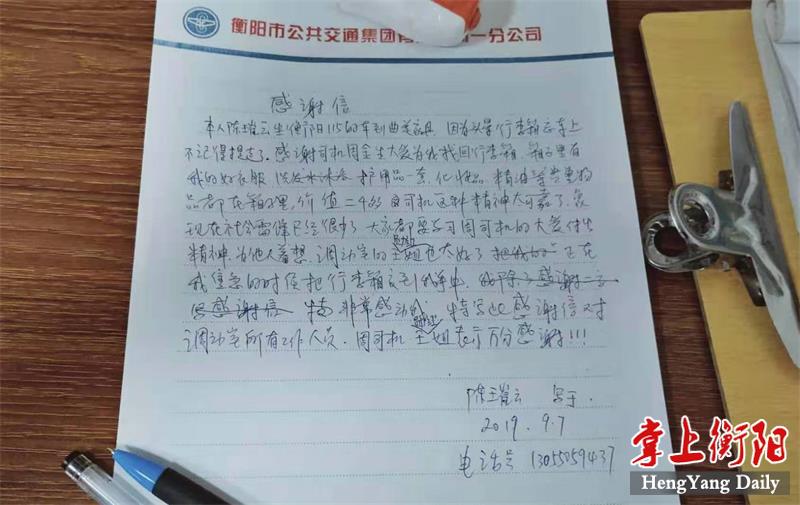 衡阳市公共交通集团有 一分公司
感谢信
本人陈 云坐衡阳115的车到曲美家具 因 头晕行李箱忘车上
不记得提走了. 感谢司机周金生大 为我找回行李箱. 箱子里有
我的好衣服 洗发水沐浴 护用品一套. 化妆品. 精油等贵重物
品都在箱子里, 价值二千 司机这种精神太可嘉了.
现在社会雷锋已经很少了 大家都要学习周司机的大爱付出
精神. 为他人着想. 调动室的 姐也太好了 正在
我焦急的时候把行李箱交到我手中. 我除了感谢
感谢信 非常感动的, 特写此感谢信 对
调动室所有工作人员. 周司机 姐表示万分感谢!!!
陈 云 写于.
2019. 9.7
电话号 13055059437
掌上衡阳
HengYang Daily